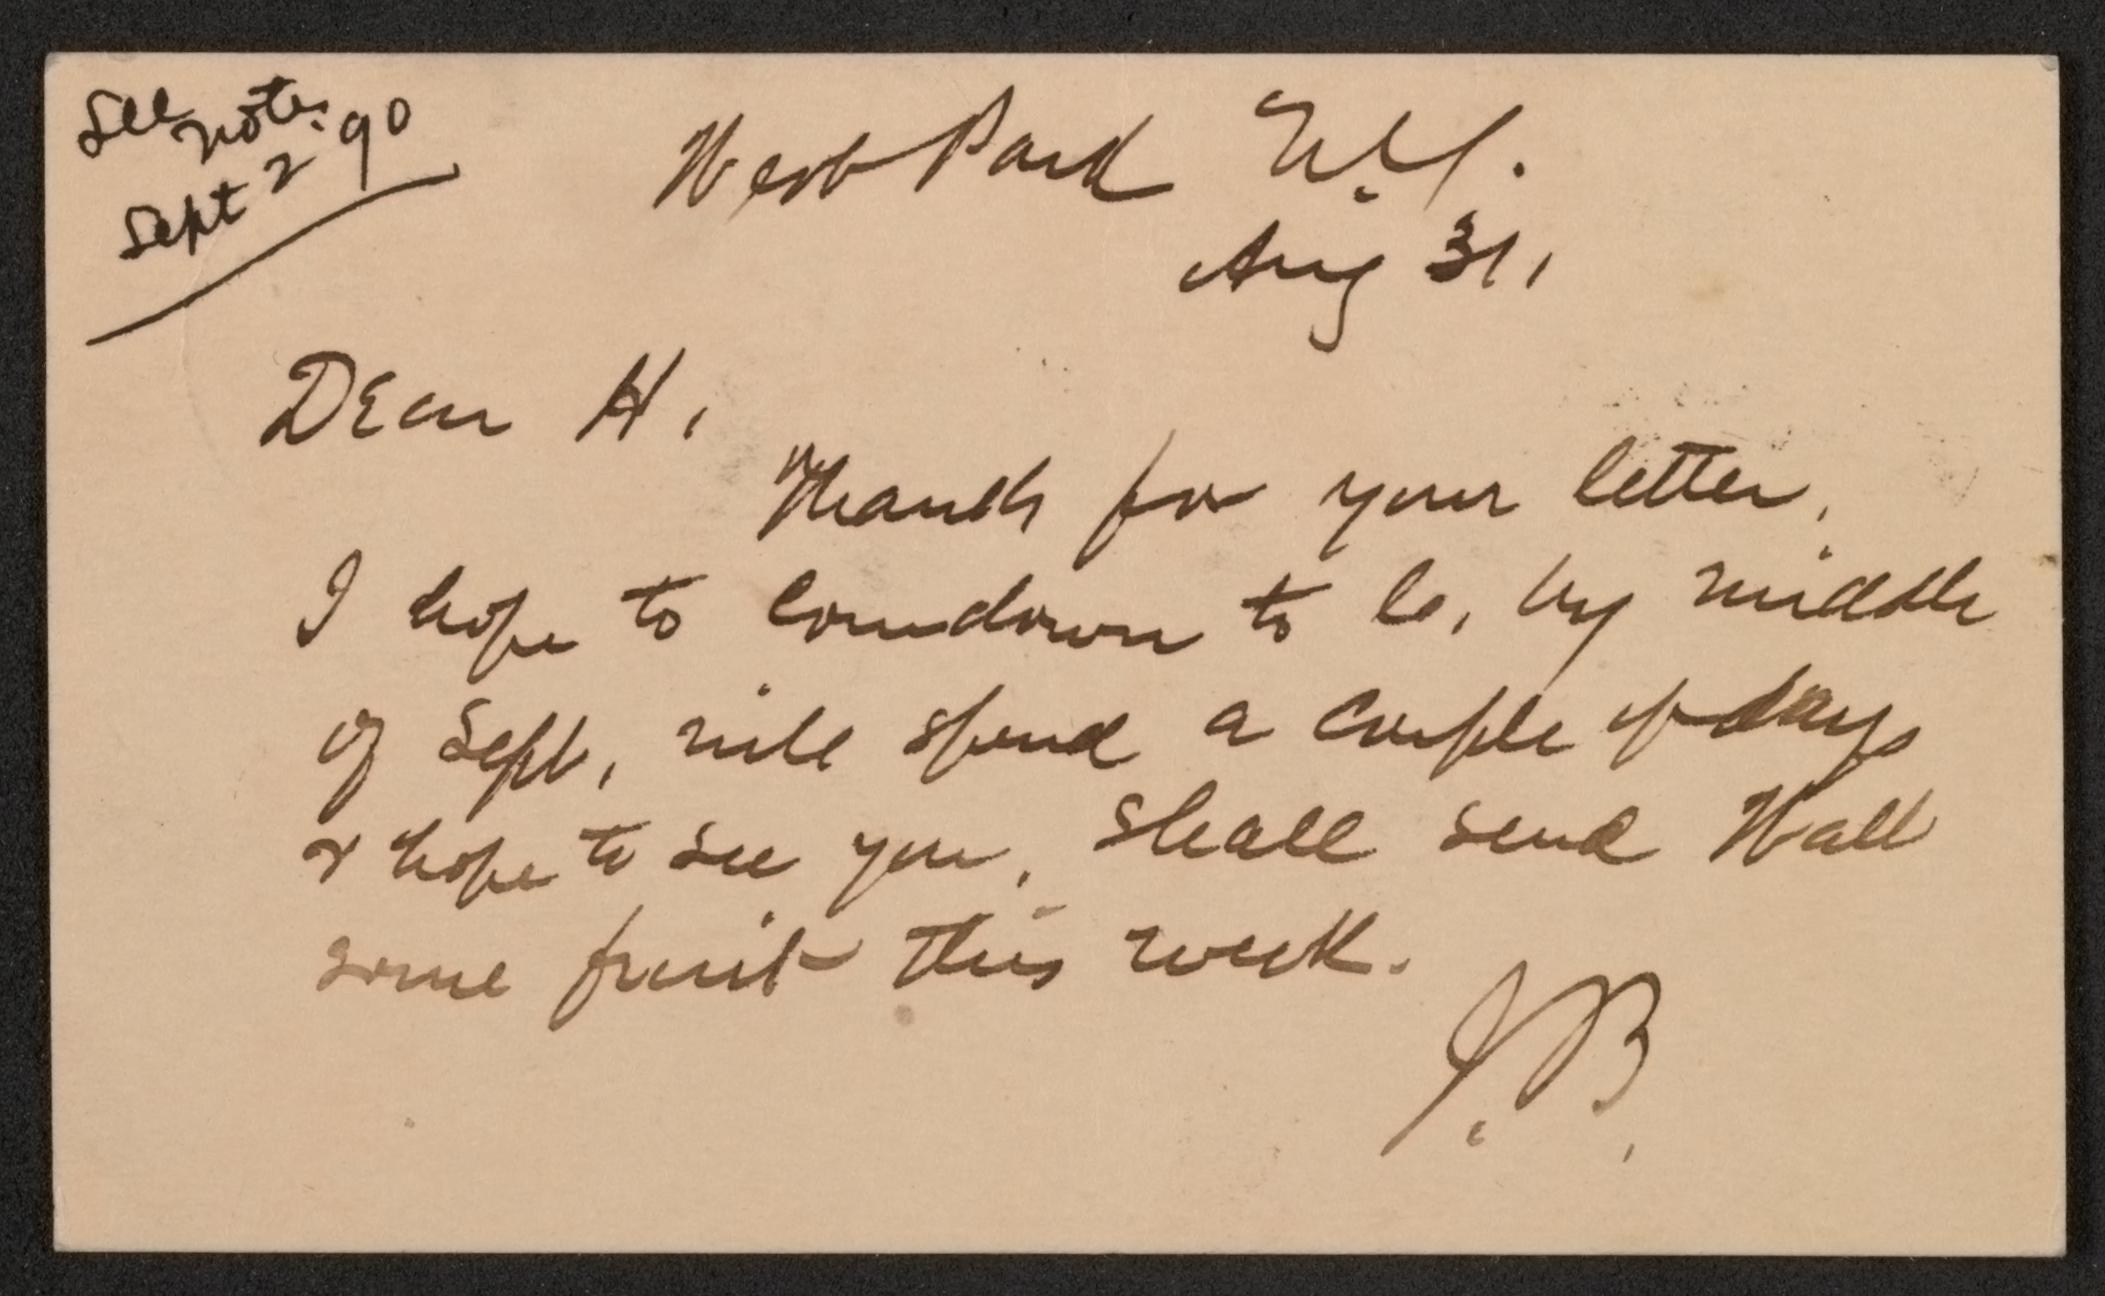 See note
Sept 2 90
West Park N.Y.
Aug 31,
Dear H,
Thanks for your letter,
I hope to come down to C. by middle
of Sept, will spend a couple of days
& hope to see you, Shall send Walt
some fruit this week.
J. B.